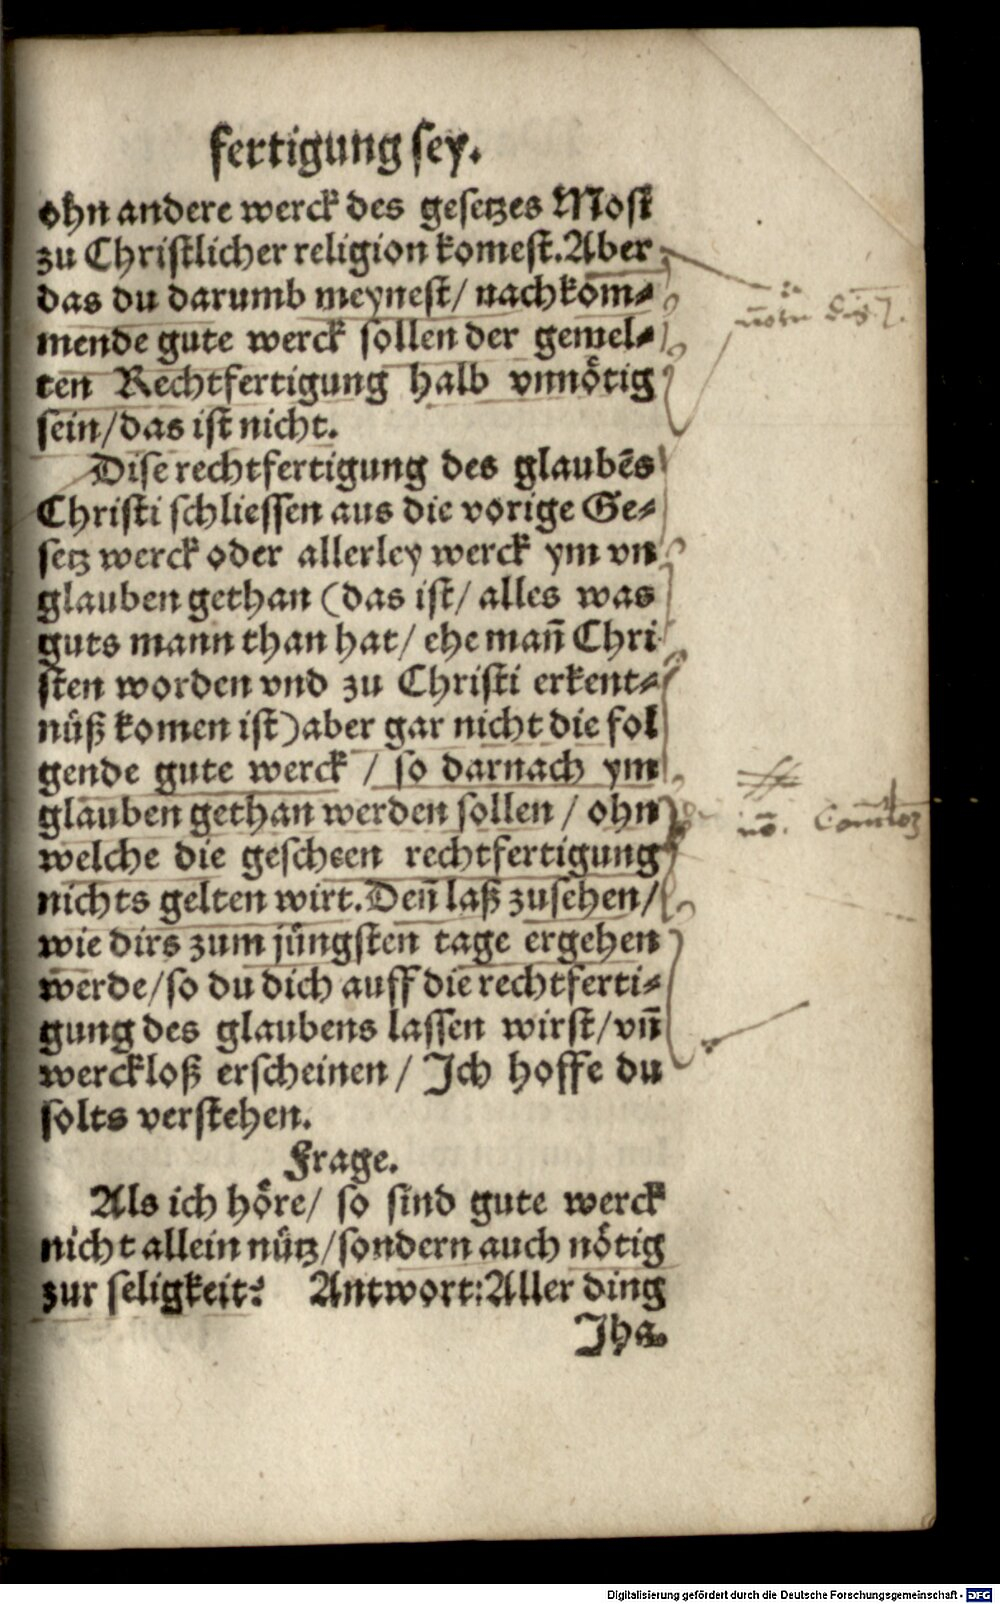 fertigung sey.
ohn andere werck des gesetzes Mosi
zu Christlicher religion komest. Aber
das du darumb meynest/ nachkom⸗
mende gute werck sollen der gemel⸗
ten Rechtfertigung halb vnnötig
sein/das ist nicht.
Dise rechtfertigung des glaubēs
Christi schliessen aus die vorige Ge⸗
setz werck oder allerley werck ym vn
glauben gethan (das ist/ alles was
guts mann than hat/ ehe mañ Chri
sten worden vnd zu Christi erkent⸗
nüß komen ist) aber gar nicht die fol
gende gute werck / so darnach ym
glauben gethan werden sollen / ohn
welche die gescheen rechtfertigung
nichts gelten wirt. Deñ laß zusehen/
wie dirs zum jüngsten tage ergehen
werde/so du dich auff die rechtferti⸗
gung des glaubens lassen wirst/vñ
werckloß erscheinen/ Ich hoffe du
solts verstehen.
Frage.
Als ich höre/ so sind gute werck
nicht allein nütz/sondern auch nötig
zur seligkeit? Antwort: Aller ding
Jhs.
Digitalisierung gefördert durch die Deutsche Forschungsgemeinschaft - DFG